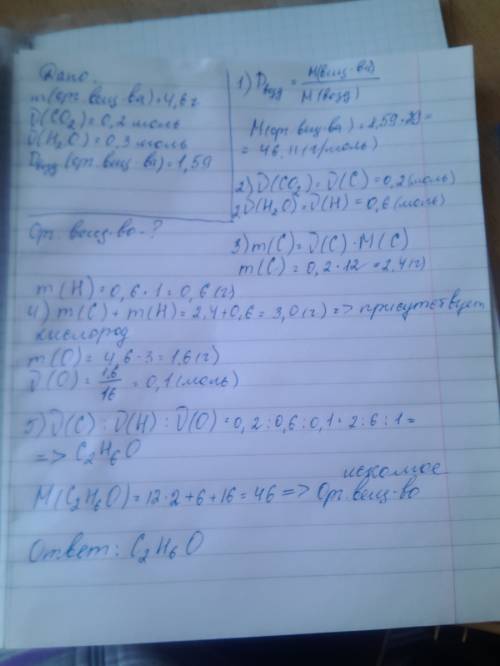 Дано:
m(орг. вещ-ва)=4,6г
ν(CO₂)=0,2 моль
ν(H₂O)=0,3 моль
Dвозд (орг. вещ-ва)=1,59
Орг. вещ-во-?
1) Dвозд = M(вещ-ва) / M(возд)
M(орг. вещ-ва)=1,59·29=
= 46,11(г/моль)
2) ν(CO₂)=ν(C)=0,2(моль)
2ν(H₂O)=ν(H)=0,6(моль)
3) m(C)=ν(C)·M(C)
m(C)=0,2·12=2,4(г)
m(H)=0,6·1=0,6(г)
4) m(C)+m(H)=2,4+0,6=3,0(г)=> присутствует
кислород
m(O)=4,6-3=1,6(г)
ν(O)=1,6/16=0,1(моль)
5) ν(C):ν(H):ν(O)=0,2:0,6:0,1=2:6:1=
=> C₂H₆O
M(C₂H₆O)=12·2+6+16=46=> искомое
Орг. вещ-во
Ответ: C₂H₆O